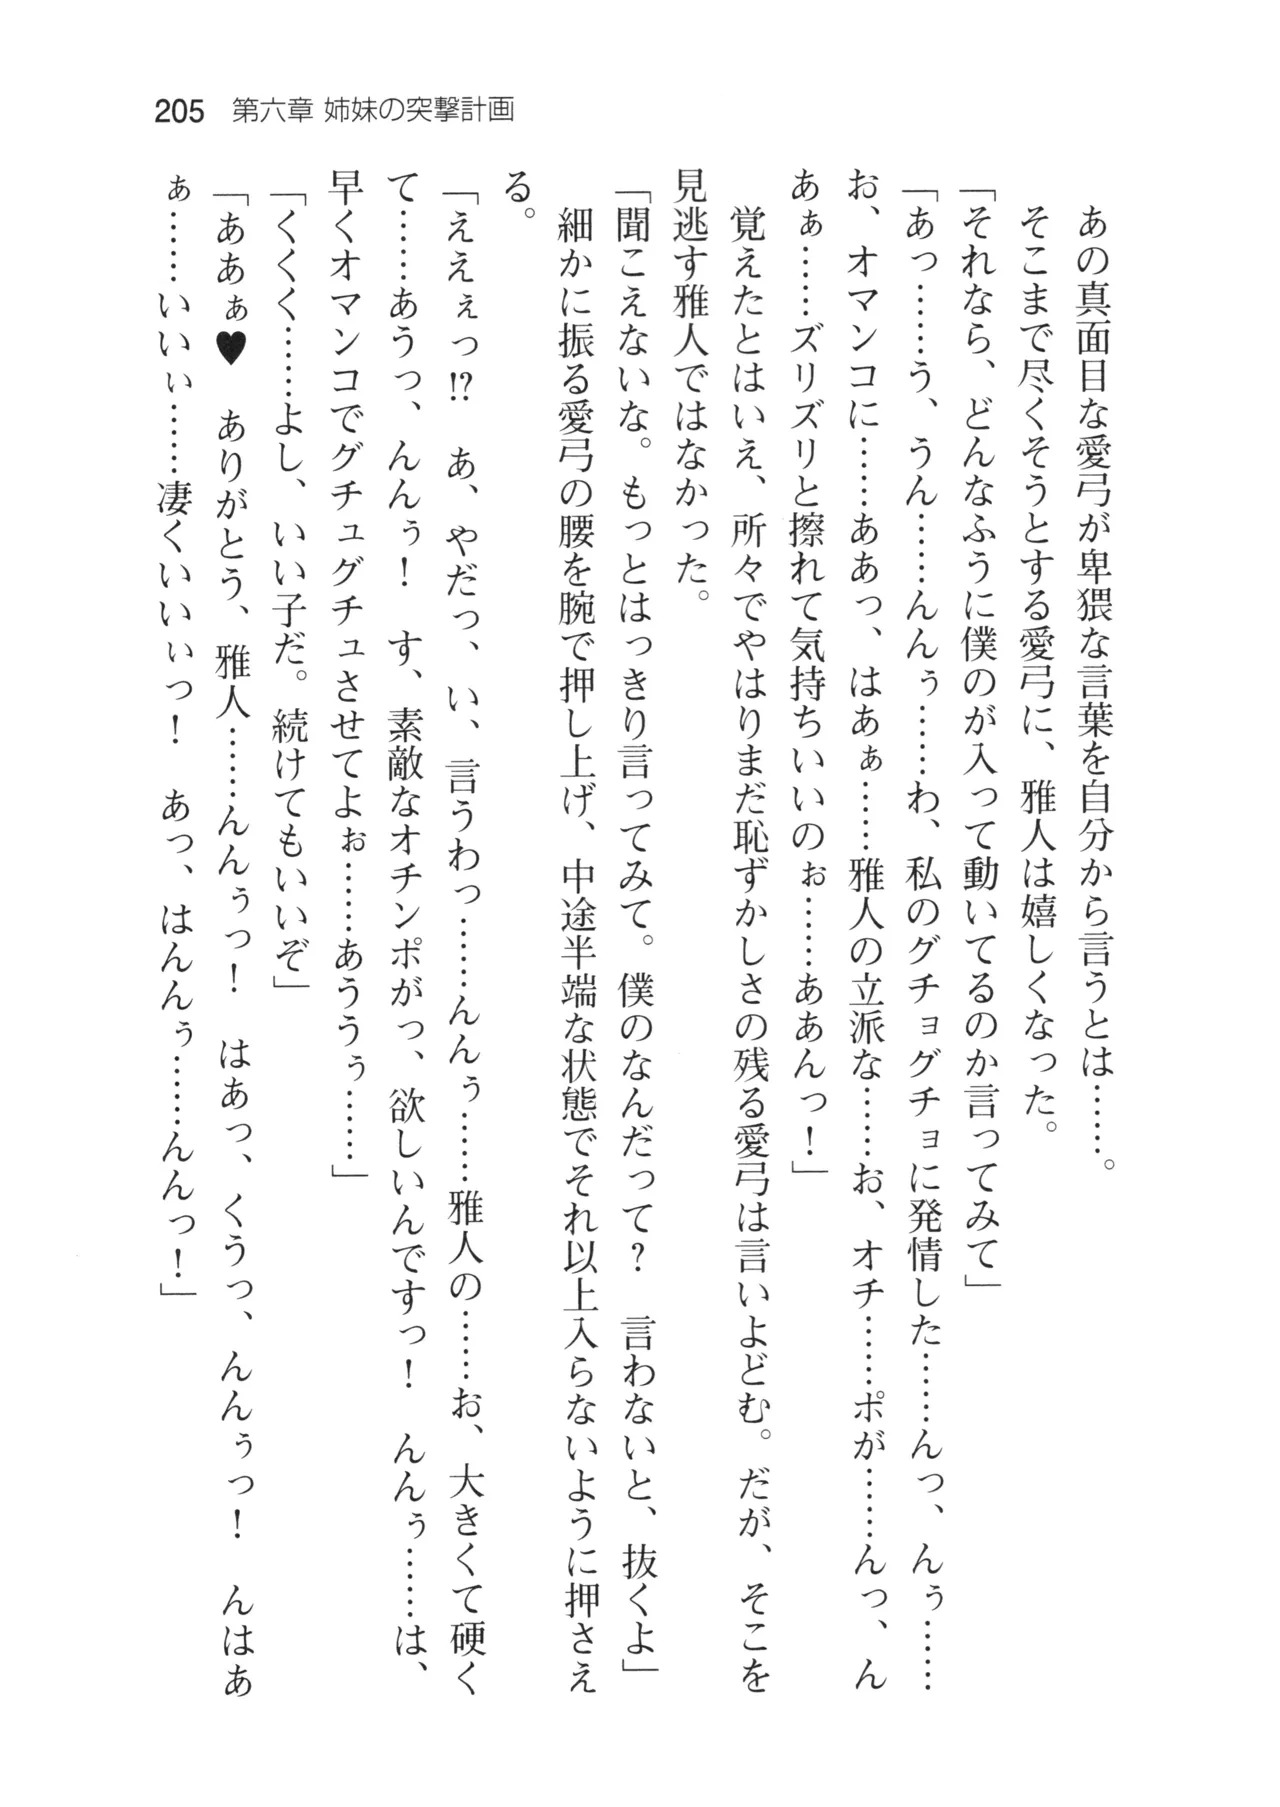 205 第六章 姉妹の突撃計画
　あの真面目な愛弓が卑猥な言葉を自分から言うとは……。
　そこまで尽くそうとする愛弓に、雅人は嬉しくなった。
「それなら、どんなふうに僕のが入って動いてるのか言ってみて」
「あっ……う、うん……んんぅ……わ、私のグチョグチョに発情した……んっ、んぅ……
お、オマンコに……ああっ、はあぁ……雅人の立派な……お、オチ……ポが……んっ、ん
あぁ……ズリズリと擦れて気持ちいいのぉ……ああんっ！」
　覚えたとはいえ、所々でやはりまだ恥ずかしさの残る愛弓は言いよどむ。だが、そこを
見逃す雅人ではなかった。
「聞こえないな。もっとはっきり言ってみて。僕のなんだって？　言わないと、抜くよ」
　細かに振る愛弓の腰を腕で押し上げ、中途半端な状態でそれ以上入らないように押さえ
る。
「ええぇっ!?　あ、やだっ、い、言うわっ……んんぅ……雅人の……お、大きくて硬く
て……あうっ、んんぅ！　す、素敵なオチンポがっ、欲しいんですっ！　んんぅ……は、
早くオマンコでグチュグチュさせてよぉ……あううぅ……」
「くくく……よし、いい子だ。続けてもいいぞ」
「ああぁ♥　ありがとう、雅人……んんぅっ！　はあっ、くうっ、んんぅっ！　んはあ
ぁ……いいいぃ……凄くいいいぃっ！　あっ、はんんぅ……んんっ！」